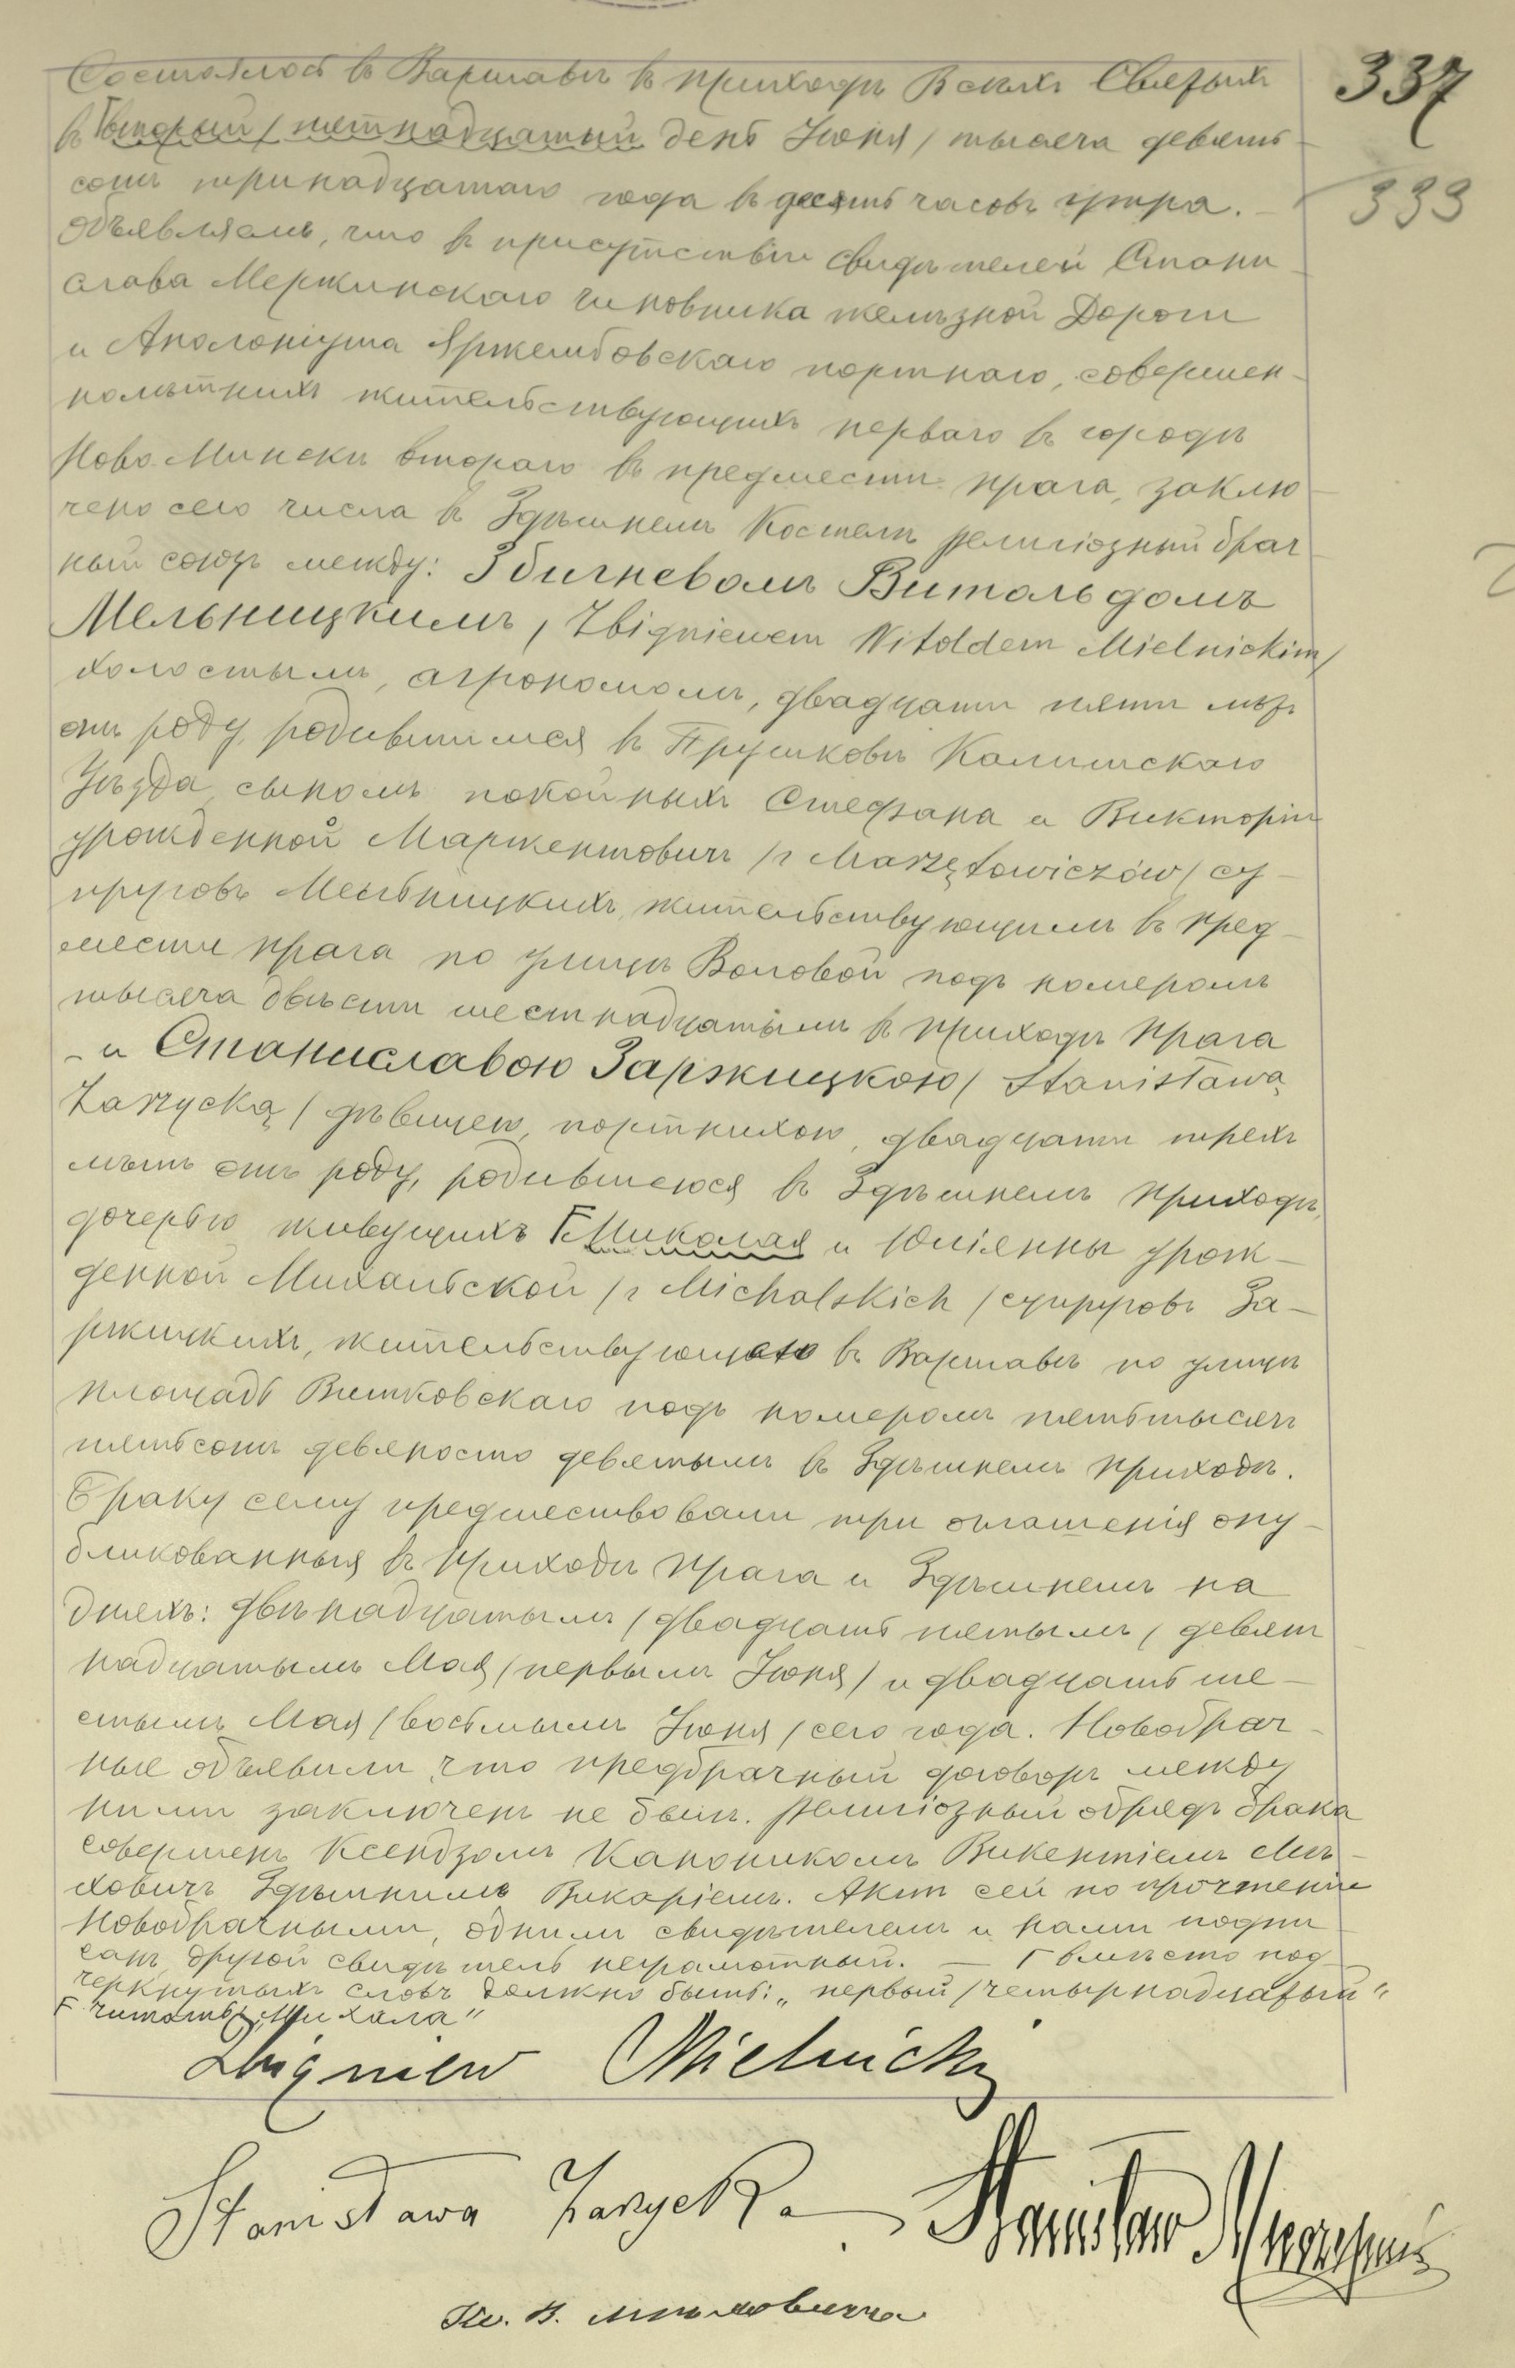 337
333
Состоялось въ Варшавѣ въ приходѣ Всѣхъ Святыхъ
въ Г второй / пятнадцатый день Іюня / тысяча девять-
сотъ тринадцатаго года въ десять часовъ утра. -
Объявляемъ, что въ присутствіи свидѣтелей Стани-
слава Мержинскаго чиновника желѣзной Дороги
и Аполонiуша Яржембовскаго портнаго, совершен-
нолѣтнихъ жительствующихъ перваго въ городѣ
Ново-Минскѣ втораго въ предмѣстіи Прага, заклю-
чено сего числа въ Здѣшнемъ Костелѣ религіозный брач-
ный союзъ между: Збигневомъ Витольдомъ
Мельницкимъ, / Zbigniewem Witoldem Mielnickim /
холостымъ, агрономомъ, двадцати пяти лѣтъ
отъ роду, родившимся въ Прушковѣ Калишскаго
Уѣзда, сыномъ покойныхъ Стефана и Викторіи
урожденной Маржентовичъ / z Marzętowiczów / су-
пруговъ Мельницкихъ, жительствующимъ въ пред-
местіи Прага по улицѣ Воловой подъ номеромъ
тысяча двѣсти шестнадцатымъ въ приходѣ Прага
- и Станиславою Заржицкою / Stanisławą
Zarzycką / дѣвицею, портнихою, двадцати трехъ
лѣтъ отъ роду, родившеюся въ Здѣшнемъ приходѣ,
дочерью живущихъ F Николая и Юліянны урож-
денной Михальской / z Michalskich / супруговъ За-
ржицкихъ, жительствующею въ Варшавѣ по улицѣ
площадь Витковскаго подъ номеромъ пятьтысячъ
пятьсотъ девяносто девятымъ въ Здѣшнемъ приходѣ.
Браку сему предшествовали три оглашенія опу-
бликованныя въ приходѣ Прага и Здѣшнемъ на
дняхъ: двѣнадцатымъ / двадцать пятымъ / девят
надцатымъ Мая / первымъ Іюня / и двадцать ше-
стымъ Мая / восьмымъ Іюня / сего года. Новобрач-
ные объявили что предбрачный договоръ между
ними заключенъ не былъ. Религіозный обрядъ брака
совершенъ Ксендзомъ Каноникомъ Викентіемъ Мѣ-
ховичъ Здѣшнимъ Викаріемъ. Актъ сей по прочтеніи
Новобрачными, однимъ свидѣтелемъ и нами подпи-
санъ, другой свидѣтель неграмотный. — Г вмѣсто под-
черкнутыхъ словъ должно быть: „первый / четырнадцатый"
F читать „Михала"
Zbigniew Mielnicki
Stanisława Zarzycka Stanisław
Кс. В. Мѣховичъ